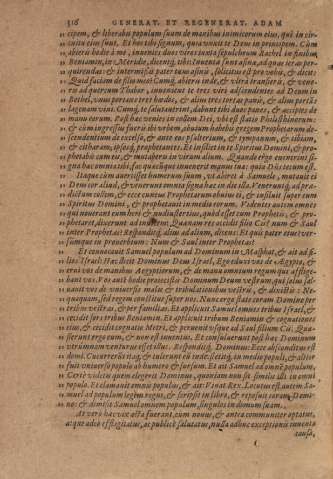 316 GENERAT. ET REGENERAT. ADAM
cipem, & liberabis populum suum de manibus inimicorum eius, qui in cir-
cuitu eius sunt, Et hoc tibi signum, quia vnxit te Deus in principem. Cùm
abieris hodie à me, inuenies duos viros iuxta sepulchrum Rachel in finibus
Beniamin, in Meridie, dicentque tibi: Inuentæ sunt asinæ, ad quas ieras per-
quirendas: & intermissis pater tuus asinis, sollicitus est pro vobis, & dicit:
Quid faciam de filio meo? Cumque abieris inde, & vltrà transieris, & vene-
ris ad quercum Thabor, inuenient te tres viri adscendentes ad Deum in
Bethel, vnus portans tres hædos, & alius tres tortas panis, & alius portãs
lagenam vini. Cumque te salutauerint, dabunt tibi duos panes, & accipies de
manu eorum. Post hæc venies in collem Dei, vbi est statio Philisthinorum:
& cùm ingressus fueris ibi vrbem, obuiam habebis gregem Prophetarum de-
scendentium de excelso, & ante eos psalterium, & tympanum, & tibiam,
& citharam, ipsosque prophetantes. Et insiliet in te Spiritus Domini, & pro-
phetabis cum eis, & mutaberis in virum alium. Quando ergo euenerint si-
gna hæc omnia tibi, fac quæcũque inuenerit manus tua: quia Dñs tecum est.
Itaque cùm auertisset humerum suum, vt abiret à Samuele, mutauit ei
Deus cor aliud, & venerunt omnia signa hæc in die illa. Veneruntque ad præ-
dictum collem, & ecce cuneus Prophetarum obuius ei, & insiluit super eum
Spiritus Domini, & prophetauit in medio eorum. Videntes autem omnes
qui nouerant eum heri & nudiustertius, quòd esset cum Prophetis, & pro-
phetaret, dixerunt ad inuicem: Quænam res accidit filio Cis? num & Saul
inter Prophetas? Responditque alius ad alium, dicens: Et quis pater eius? ver-
sumque in prouerbium: Num & Saul inter Prophetas?
Et conuocauit Samuel populum ad Dominum in Masphat, & ait ad fi-
lios Israël: Hæc dicit Dominus Deus Israël, Ego eduxi vos de Ægypto, &
erui vos de manibus Aegyptiorum, & de manu omnium regum qui afflige-
bant vos. Vos autē hodie proiecistis Dominum Deum vestrum, qui solus sal-
uauit vos de vniuersis malis & tribulationibus vestris, & dixistis: Ne-
quaquam, sed regem constitue super nos. Nunc ergo state coram Domino per
tribus vestras, & per familias. Et applicuit Samuel omnes tribus Israël, &
cecidit sors tribus Beniamin. Et applicuit tribum Beniamin & cognationes
eius, & cecidit cognatio Metri, & peruenit vsque ad Saul filium Cis. Quæ-
sierunt ergo eum, & non est inuentus. Et consuluerunt post hæc Dominum
vtrumnam venturus esset illuc. Responditque Dominus: Ecce absconditus est
domi. Cucurrerũt itaque, & tulerunt eũ inde: stetitque in medio populi, & altior
fuit vniuerso populo ab humero & sursum. Et ait Samuel ad omnē populum,
Certè videtis quem elegerit Dominus, quoniam non sit similis illi in omni
populo. Et clamauit omnis populus, & ait: Viuat Rex. Locutus est autem Sa-
muel ad populum legem regni, & scripsit in libro, & reposuit coram Domi-
no: & dimisit Samuel omnem populum, singulos in domum suam.
At verò hæc vice acta fuerant, cum nouus, & antea communiter optatus,
atque adeò efflagitatus, ac publicè salutatus, nulla adhuc exceptionis inuenta
causa,